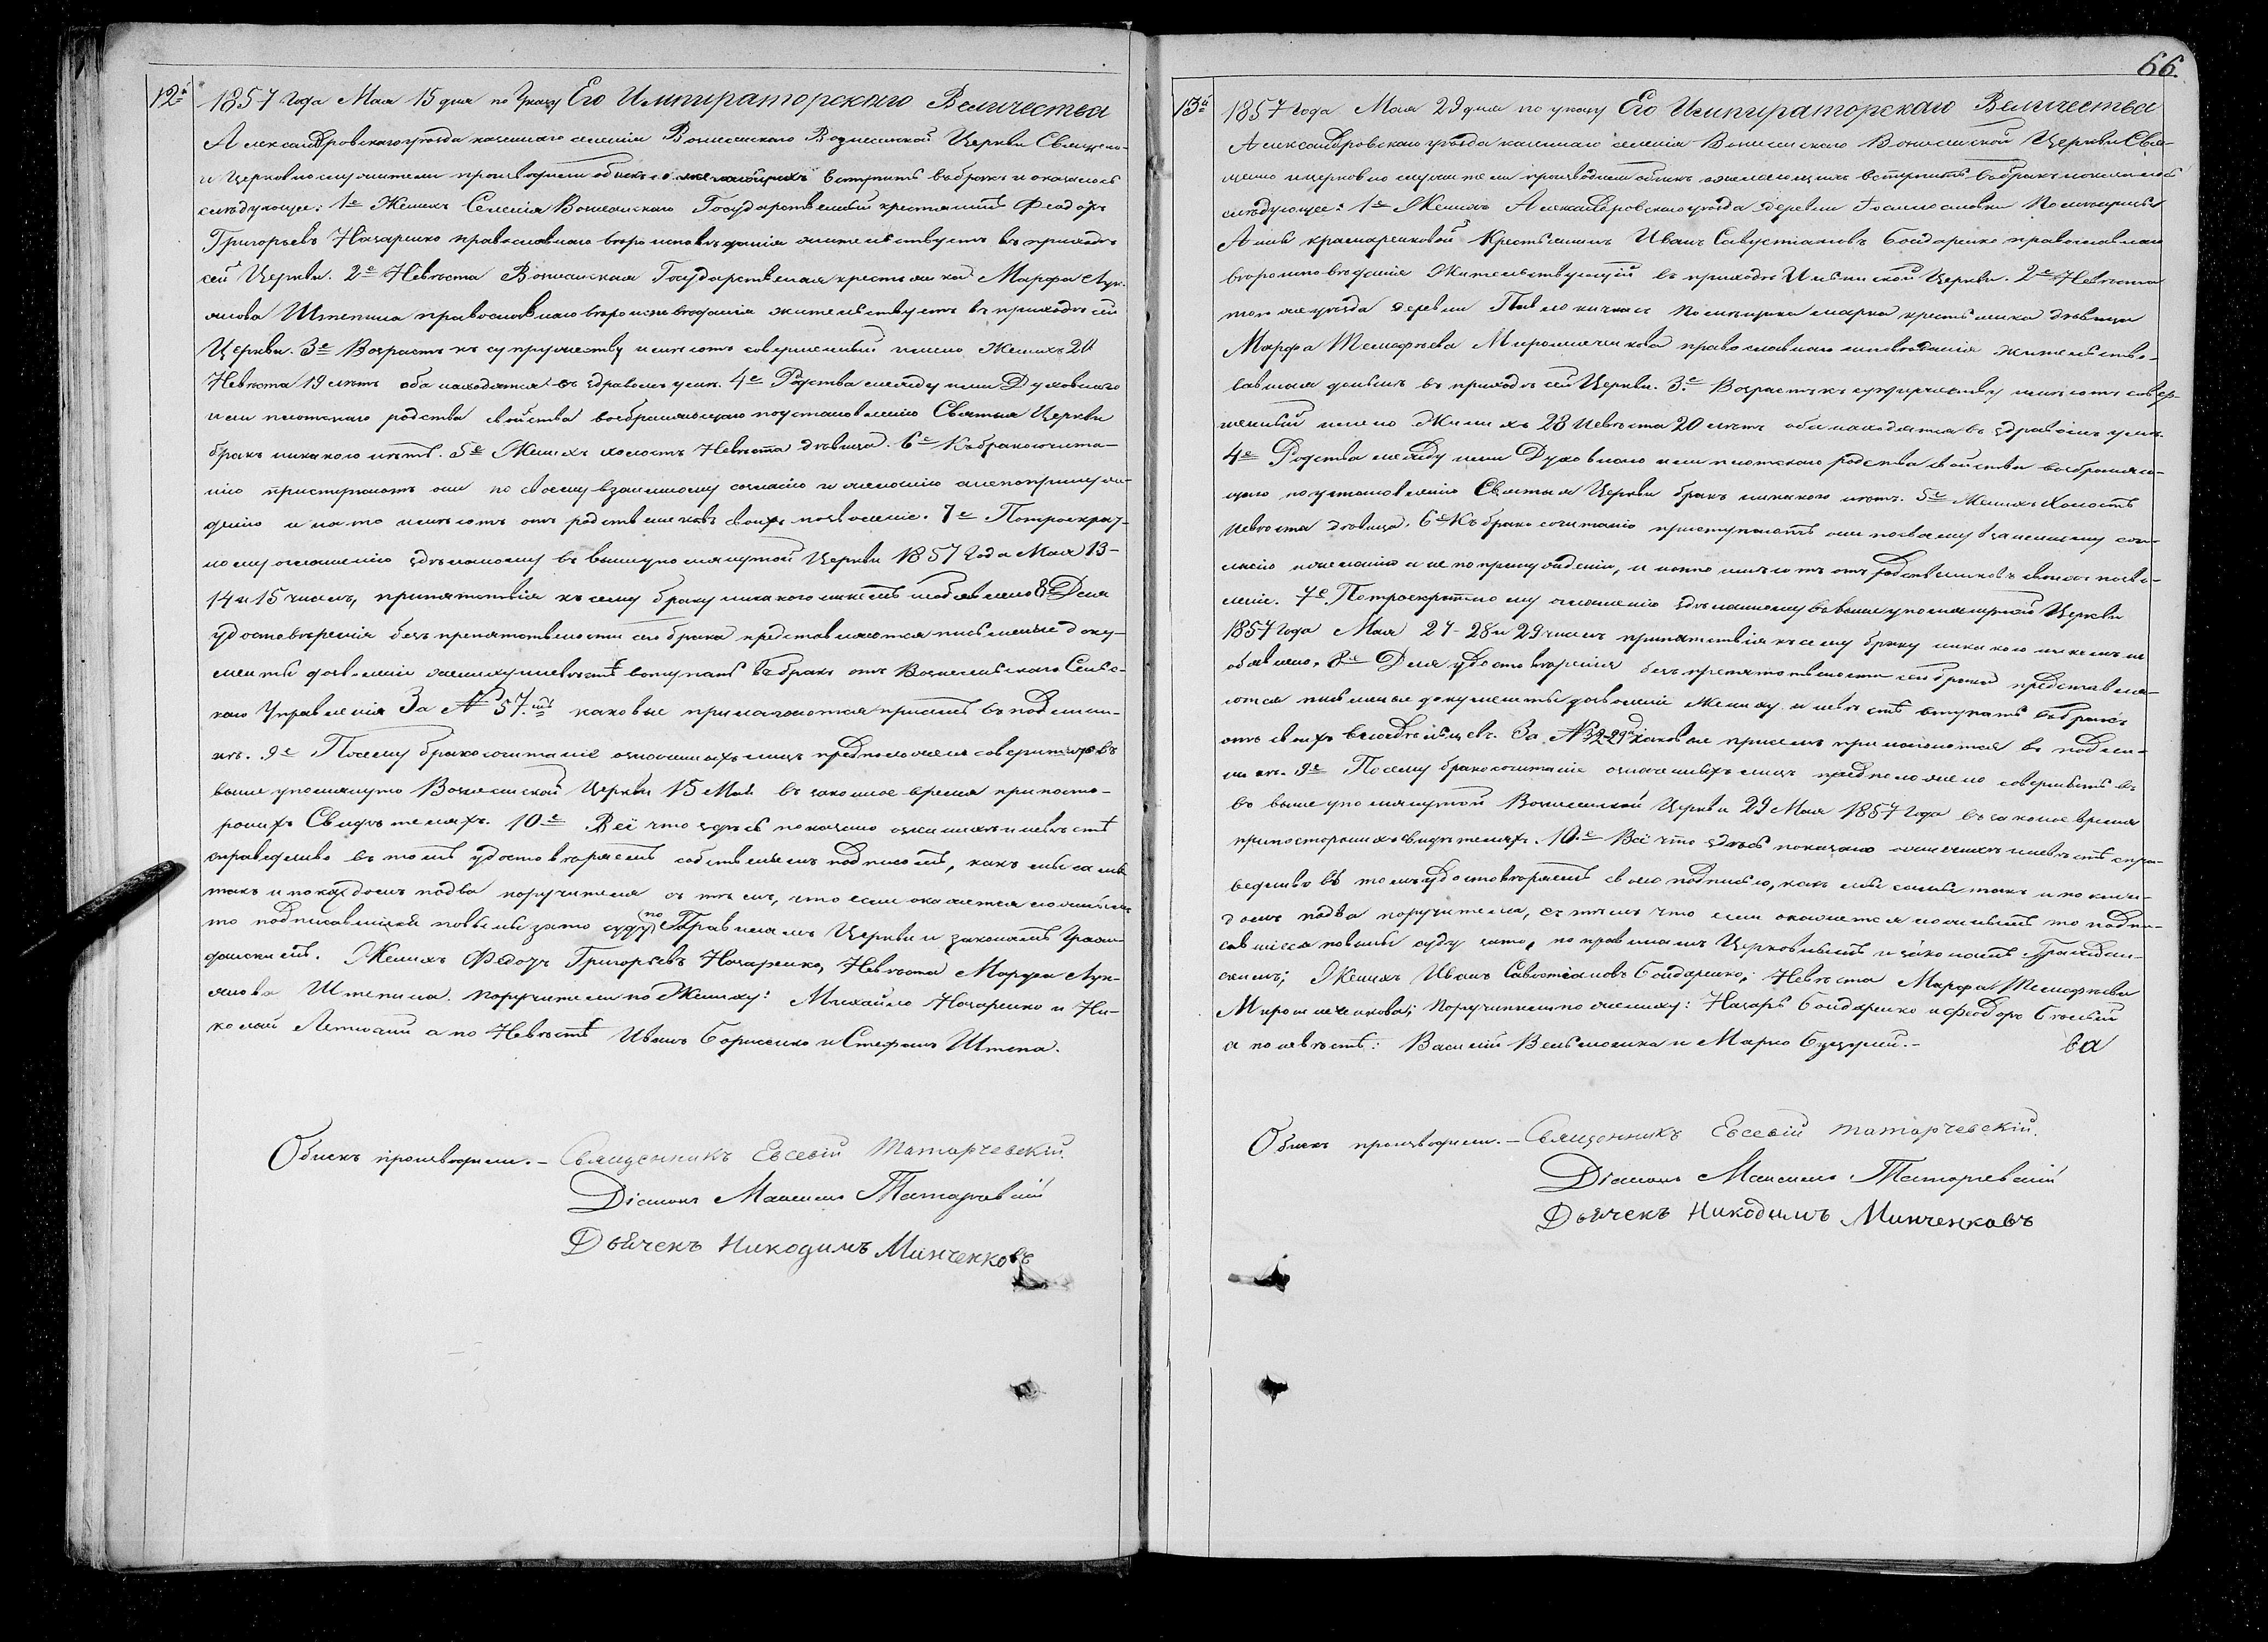 12й
1857 года Мая 15 дня по Указу Его Импираторскаго Величества
Александровскаго уѣзда казеннаго селенія Вознесенскаго Вознесенской Церкви Священо-
и церковнослужители производили обыскъ о желающихъ вступить въ бракъ и оказалось
слѣдующее: 1е Женихъ Селенія Вознесенскаго Государственный крестьянинъ Феодоръ
Григорьевъ Назаренко православнаго вѣроисповѣданія жительствуетъ въ приходѣ
сей Церкви. 2е Невѣста Вознесенская Государственая крестьянка Марфа Лук-
янова Штепина православнаго вѣроисповѣданія жительствуетъ въ приходѣ сей
Церкви. 3е Возрастъ къ супружеству имѣютъ совершенный имено Женихъ 20
Невѣста 19 лѣтъ оба находятся въ здравомъ умѣ. 4е Родства между ими Духовнаго
или плотскаго родства свойства возбраняющаго по установленію Святыя Церкви
бракъ никакого нѣтъ. 5е Женихъ холостъ Невѣста дѣвица. 6е Къ бракосочита-
нію приступаютъ они по своему взаимному согласію и желанію а не по принуж-
денію и на то имѣютъ отъ родственниковъ своихъ позволеніе. 7е Потроекрат-
ному оглашенію здѣланному въ вышеупомянутой Церкви 1857 Года Мая 13-
14 и 15 чиселъ, припятствія къ сему браку никакого никемъ необявлено 8е Для
удостовѣренія безъ препятственности сего брака представляются письменые доку-
менты дозволеніе жениху и невѣстѣ вступать въ бракъ отъ Вознесенскаго Сельс-
каго Управленія За № 57.мъ каковые прилагаются присемъ въ подлин-
икѣ. 9е Посему бракосочитаніе означенныхъ лицъ предположено совершить въ
выше упомянуто Вознесенской Церкви 15 Мая въ законное время при посто-
ронихъ Свидѣтеляхъ. 10е Всё что здѣсь показано о женихѣ и невѣстѣ
справедливо въ томъ удостовѣряемъ собственымъ подписомъ, какъ мы сами
такъ и по каждомъ по два поручителя съ тѣмъ, что если окажется ложнымъ
то подписавшіеся повины за то суду по Правиламъ Церкви и законамъ Граж-
данскимъ. Женихъ Федоръ Григорьевъ Назаренко, Невѣста Марфа Лук-
янова Штепина. Поручители по Жениху: Михайло Назаренко и Ни-
колай а по Невѣстѣ Иванъ Борисенко и Стефанъ Штепа.
Обыскъ производили.- Священникъ Евсевій Татарчевскій.
Діаконъ Татарчевскій
Дьячекъ Никодимъ Минченковъ
66.
13й
1857 года Мая 29 дня по указу Его Импираторскаго Величества
Александровскаго уѣзда казеннаго селенія Вознесенскаго Вознесенской Церкви Свя-
щено и церковно служители производили обыскъ о желающихъ вступить въ бракъ и оказалось
слѣдующее: 1е Женихъ Александровскаго уѣзда деревни Помѣщицы
Анны Крестьянинъ Иванъ Савустіановъ Бондаренко православнаго
вѣроисповѣданія Жительствующій въ приходѣ Церкви. 2е Невѣста
того же уѣзда деревни Помѣщика Марка крестьянка дѣвица
Марфа Тимофѣева Мирошниченкова православнаго исповѣданія жительство-
вавшая въ приходѣ сей Церкви. 3е Возрастъ къ супружеству имѣютъ совер-
шенный имено Женихъ 23 Невѣста 20 лѣтъ оба находятся въ здравомъ умѣ.
4е Родства между ими Духовнаго или плотскаго родства свойства возбраняю-
щаго по установленію Святыя Церкви бракъ никакого нѣтъ. 5е Женихъ Холостъ
Невѣста дѣвица. 6е Къ бракосочитанію приступаютъ они по своему взаимному сог-
ласію и желанію а не по принужденію, и на то имѣютъ отъ родственниковъ своихъ позво-
леніе. 7е. Потроекратному оглашенію здѣланному въ вышеупомянутой Церкви
1857 года Мая 27-28 и 29 чиселъ припятствія къ сему браку никакого никемъ не
обявлено. 8е Для удостовѣренія безъ препятственности сего брака представля-
ются письменые документы дозволеніе Жениху и невѣстѣ вступать въ бракъ
отъ своихъ владѣльцевъ. За № каковые присемъ прилагаются въ подлин-
никѣ. 9е Посему бракосочитаніе означенныхъ лицъ предположено совершить въ
въ выше упомянутой Вознесенской Церкви 29 Мая 1857 Года въ законое время
при постороннихъ свидѣтеляхъ. 10.е Всё что здѣсь показано о женихѣ и невѣстѣ спра-
ведливо въ томъ удостовѣряемъ своею подписью, какъ мы сами такъ и по каж-
домъ по два поручителя, съ тѣмъ что если окажется ложнымъ то подпи-
савшіеся повины суду за то, по правиламъ Церковнымъ и законамъ Граждан-
скимъ; Женихъ Иванъ Савостіановъ Бондаренко; Невѣста Марфа Тимофѣева
Мирошниченкова; Поручители по жениху: Назаръ Бондаренко и Феодоръ Бѣлый
а по невѣстѣ: Василій и Марко Буцурій.-
Обыскъ производили.- Священникъ Евсевій Татарчевскій.
Діаконъ Татарчевскій
Дьячекъ Никодимъ Минченковъ